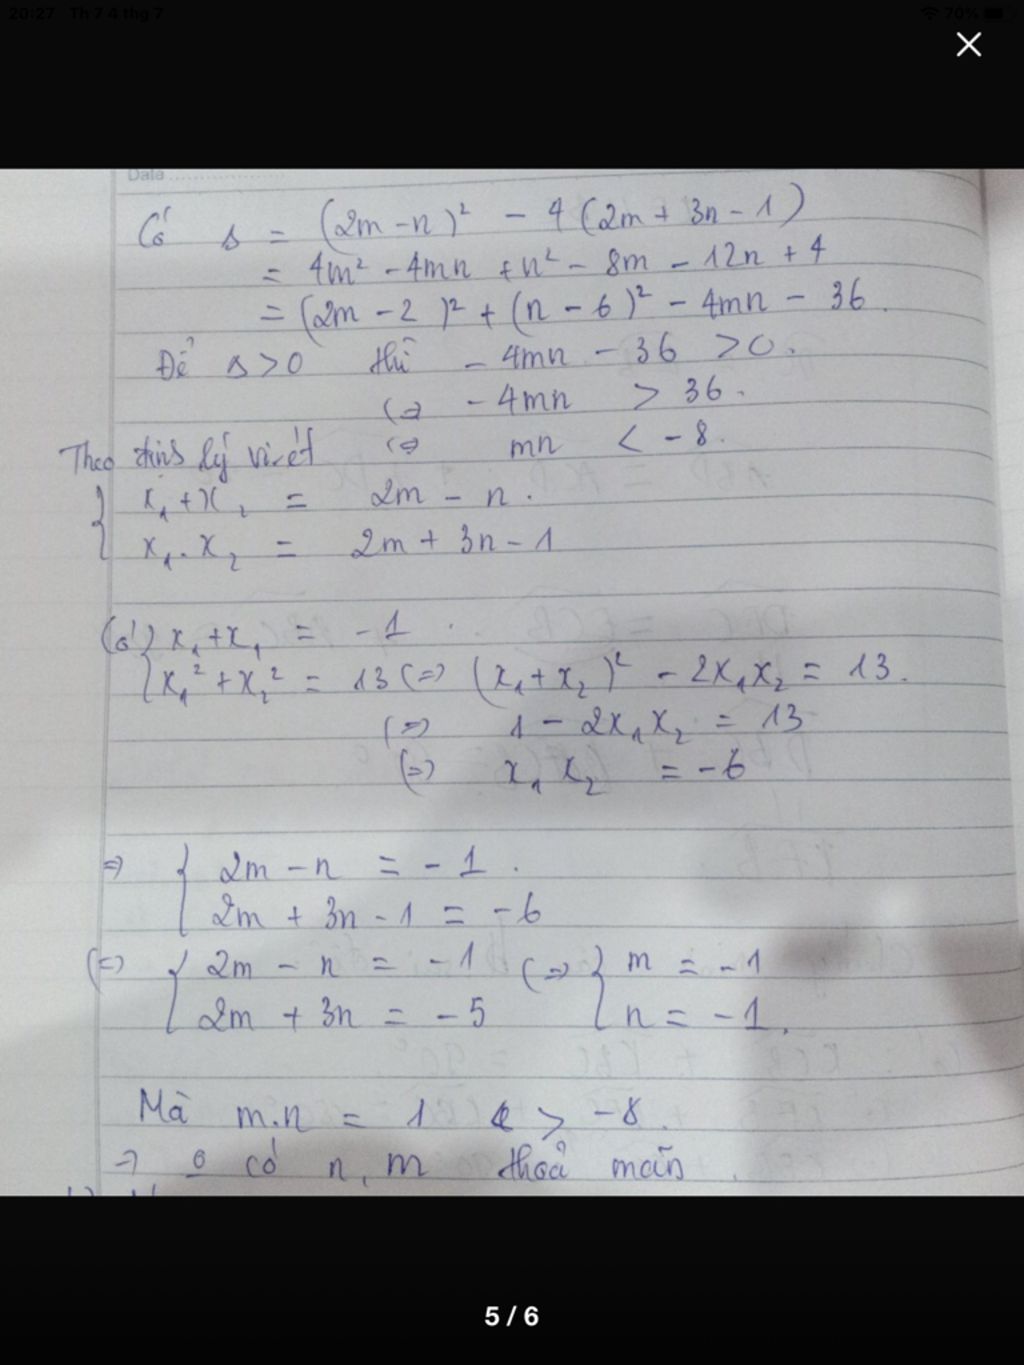 20:27 Th 7 4 thg 7
70%
Date
Có Δ = (2m - n)² - 4(2m + 3n - 1)
= 4m² - 4mn + n² - 8m - 12n + 4
= (2m - 2)² + (n - 6)² - 4mn - 36.
Để Δ > 0 thì - 4mn - 36 > 0.
(=> - 4mn > 36.
(=> mn < -8.
Theo định lý vi-ét
{ x₁ + x₂ = 2m - n.
x₁ . x₂ = 2m + 3n - 1
Có { x₁ + x₁ = -1.
x₁² + x₂² = 13 (=> (x₁ + x₂)² - 2x₁x₂ = 13.
(=> 1 - 2x₁x₂ = 13
(=> x₁ x₂ = -6
=> { 2m - n = -1.
2m + 3n - 1 = -6
(=> { 2m - n = -1 (=> { m = -1
2m + 3n = -5 n = -1.
Mà m.n = 1 > -8.
=> có n, m thoả mãn.
5 / 6